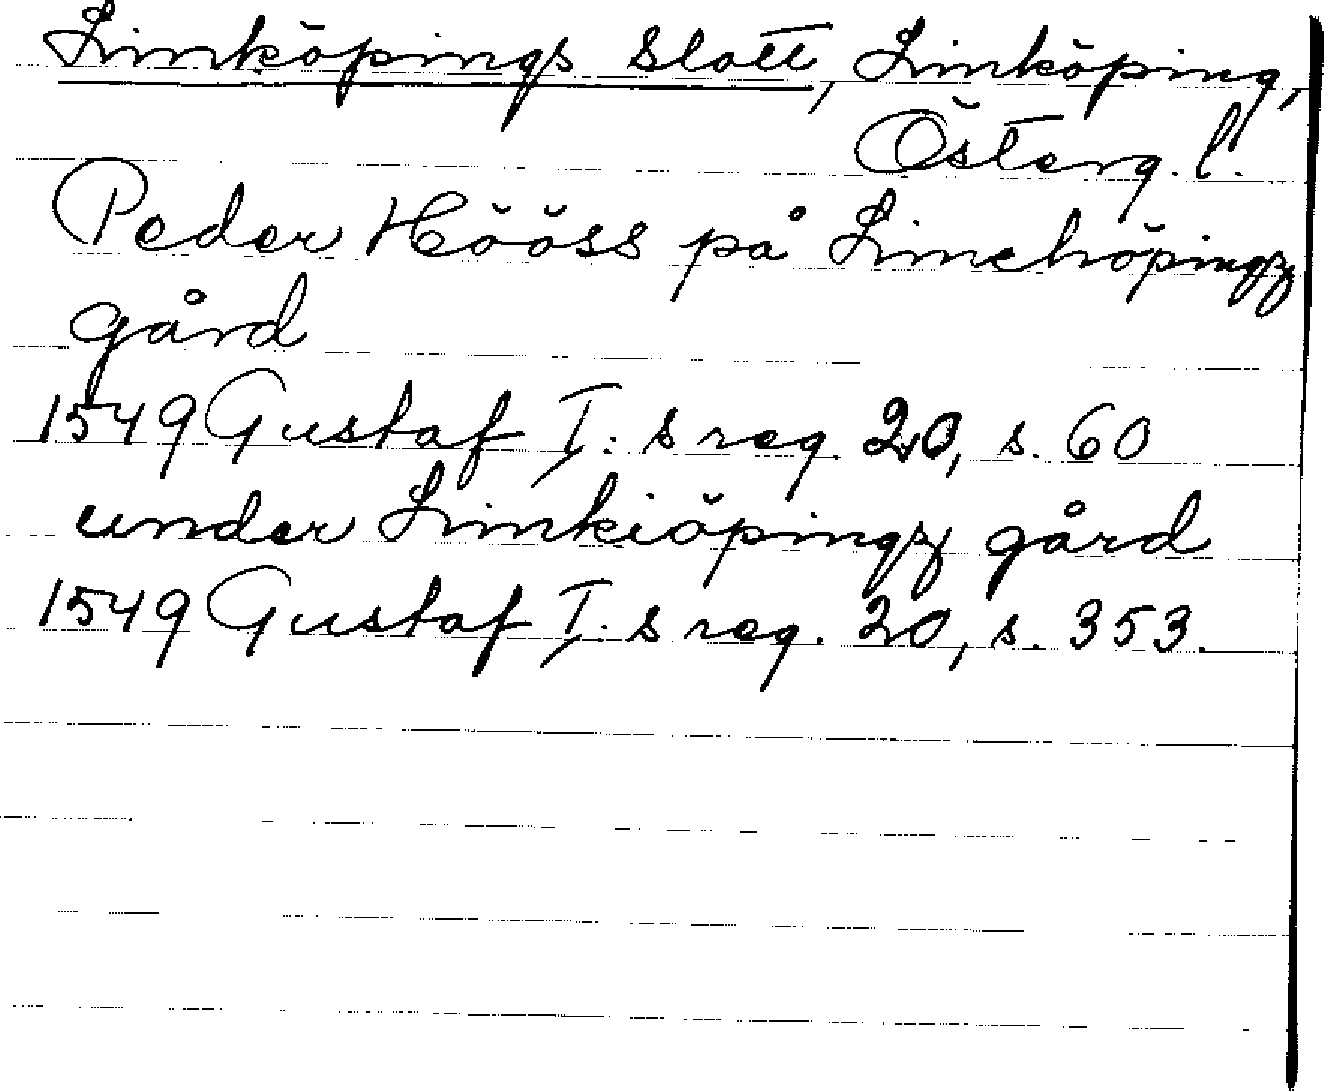 Linköpings slott, Linköping,
Österg. l.
Peder Hööss på Linchöpingz
gård
1549 Gustaf I:s reg. 20, s. 60
under Linkiöpingz gård
1549 Gustaf I:s reg. 20, s. 353.